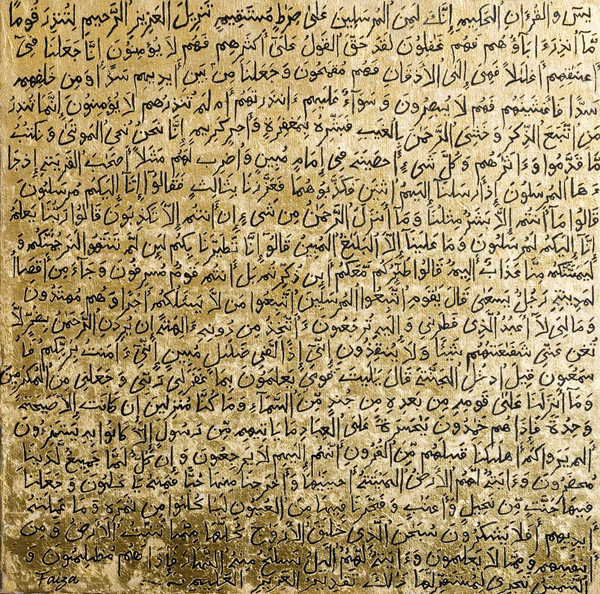 يس و القرءان الحكيم إنك لمن المرسلين على صرط مستقيم تنزيل العزيز الرحيم لتنذر قوما
ما أنذر ءاباؤهم فهم غفلون لقد حق القول على أكثرهم فهم لا يؤمنون إنا جعلنا في
أعنقهم أغللا فهي إلى الأذقان فهم مقمحون و جعلنا من بين أيديهم سدا و من خلفهم
سدا فأغشينهم فهم لا يبصرون و سواء عليهم ءأنذرتهم أم لم تنذرهم لا يؤمنون إنما تنذر
من اتبع الذكر و خشي الرحمن بالغيب فبشره بمغفرة و أجر كريم إنا نحن نحي الموتى و نكتب
ما قدموا و ءاثرهم و كل شيء أحصينه في إمام مبين و اضرب لهم مثلا أصحب القرية إذ جا
ءها المرسلون إذ أرسلنا إليهم اثنين فكذبوهما فعززنا بثالث فقالوا إنا إليكم مرسلون
قالوا ما أنتم إلا بشر مثلنا و ما أنزل الرحمن من شيء إن أنتم إلا تكذبون قالوا ربنا يعلم
إنا إليكم لمرسلون و ما علينا إلا البلغ المبين قالوا إنا تطيرنا بكم لئن لم تنتهوا لنرجمنكم و
ليمسنكم منا عذاب أليم قالوا طئركم معكم أئن ذكرتم بل أنتم قوم مسرفون و جاء من أقصا
المدينة رجل يسعى قال يقوم اتبعوا المرسلين اتبعوا من لا يسئلكم أجرا و هم مهتدون
و ما لي لا أعبد الذي فطرني و إليه ترجعون ءأتخذ من دونه ءالهة إن يردن الرحمن بضر لا
تغن عني شفعتهم شيئا و لا ينقذون إني إذا لفي ضلل مبين إني ءامنت بربكم فا
سمعون قيل ادخل الجنة قال يليت قومي يعلمون بما غفر لي ربي و جعلني من المكرمين
و ما أنزلنا على قومه من بعده من جند من السماء و ما كنا منزلين إن كانت إلا صيحة
وحدة فإذا هم خمدون يحسرة على العباد ما يأتيهم من رسول إلا كانوا به يستهزءون
ألم يروا كم أهلكنا قبلهم من القرون أنهم إليهم لا يرجعون و إن كل لما جميع لدينا
محضرون و ءاية لهم الأرض الميتة أحيينها و أخرجنا منها حبا فمنه يأكلون و جعلنا
فيها جنت من نخيل و أعنب و فجرنا فيها من العيون ليأكلوا من ثمره و ما عملته
أيديهم أفلا يشكرون سبحن الذي خلق الأزوج كلها مما تنبت الأرض و من
أنفسهم و مما لا يعلمون و ءاية لهم اليل نسلخ منه النهار فإذا هم مظلمون و
الشمس تجري لمستقر لها ذلك تقدير العزيز العليم
Faiza